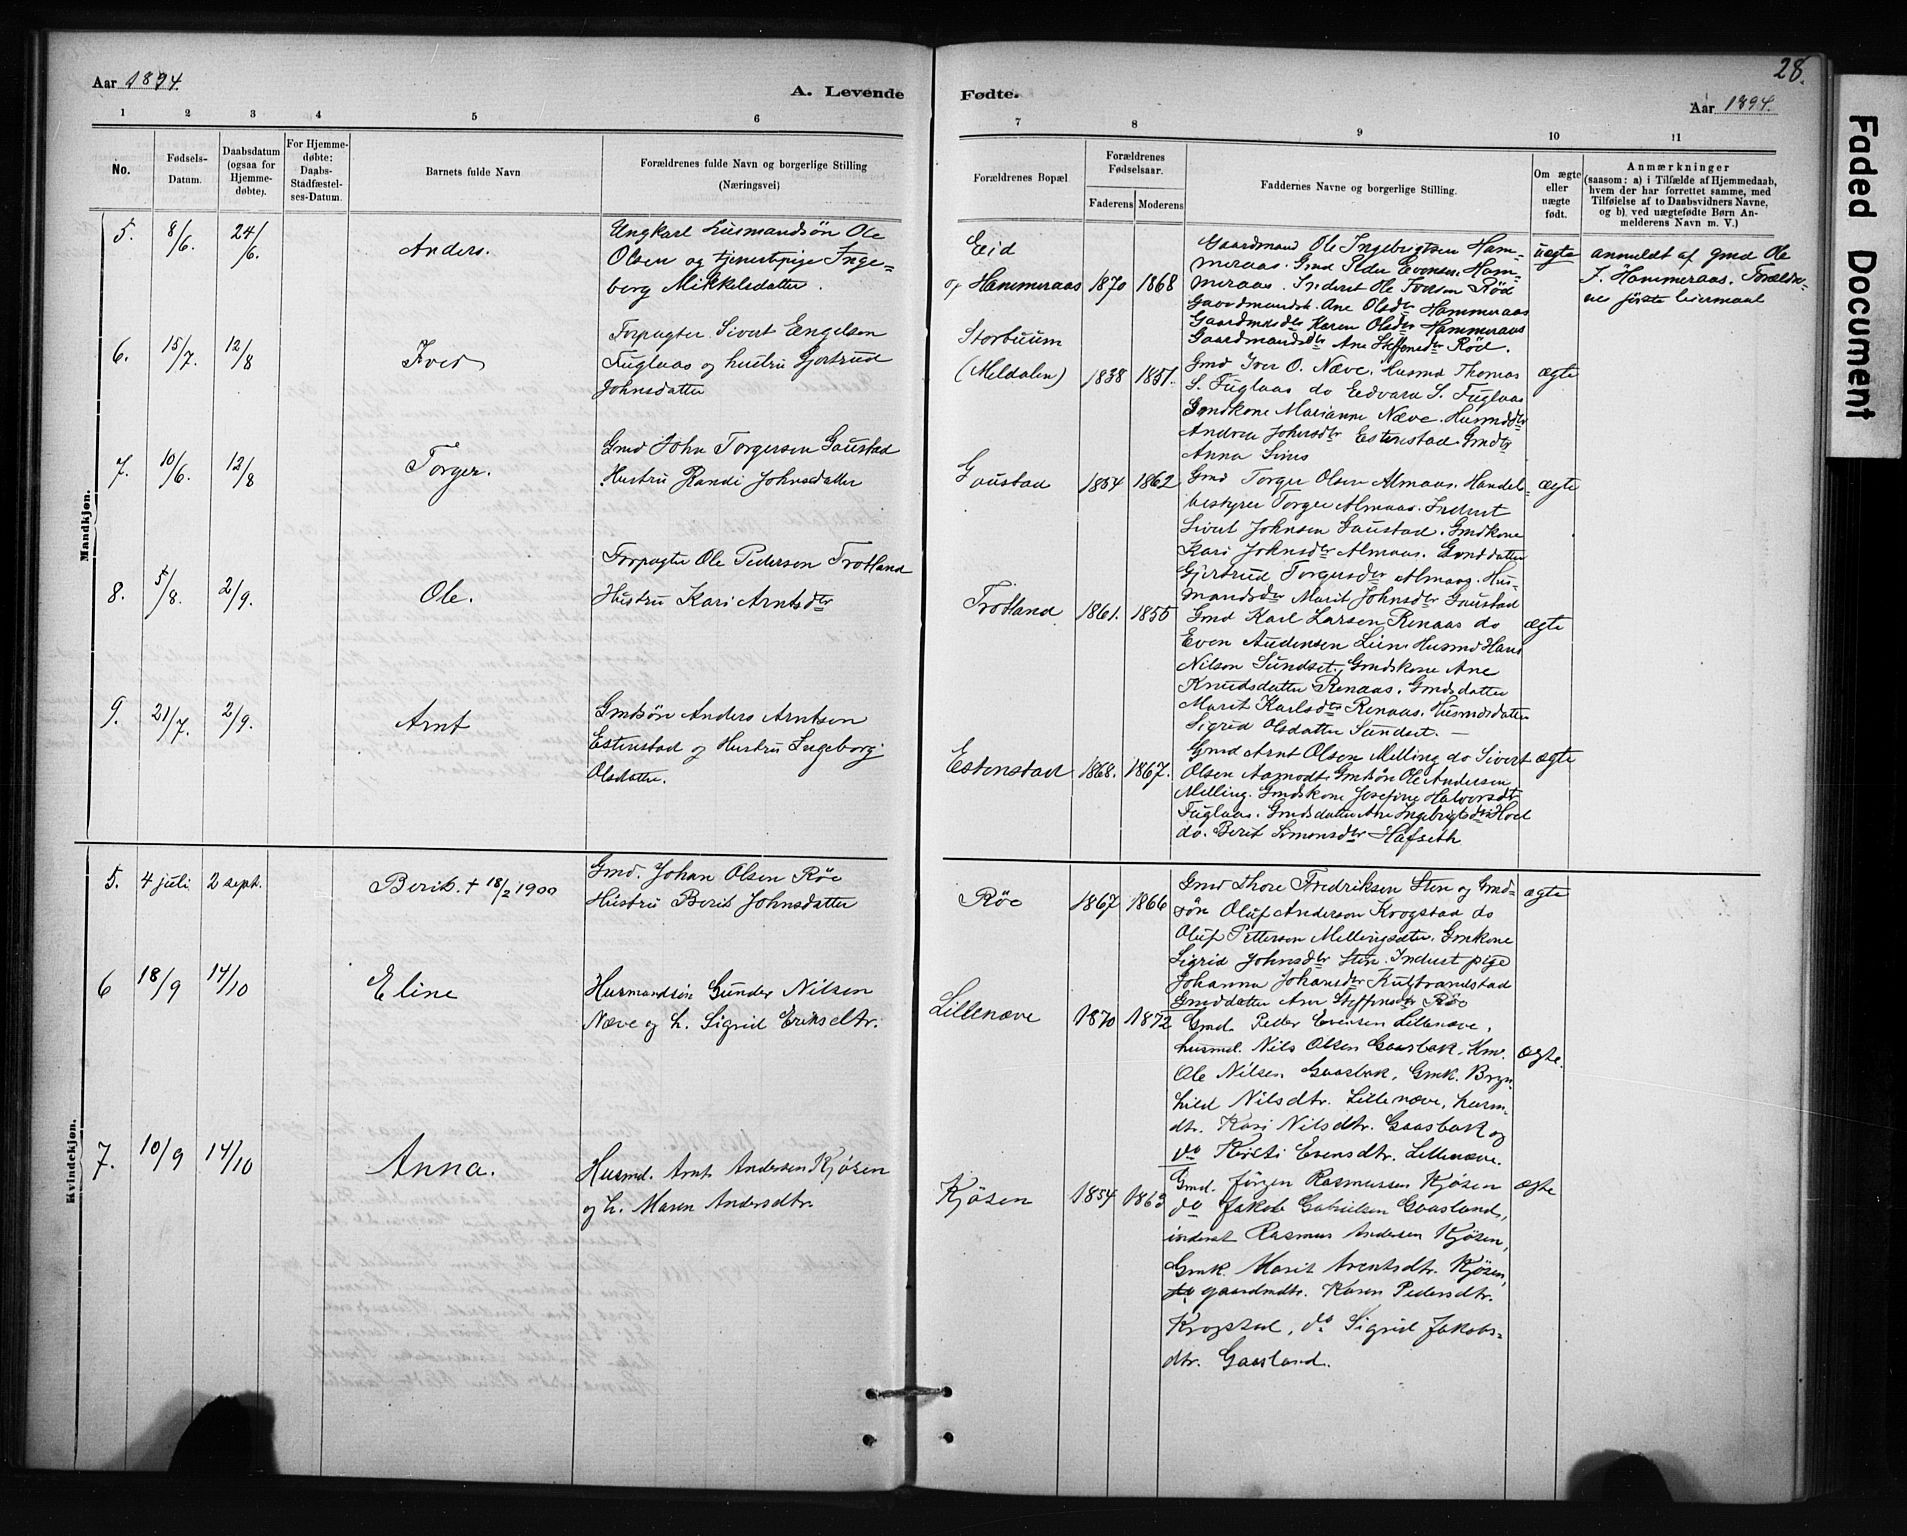 Aar 1894.
A. Levende Fødte.
28.
Aar 1894.
1 2 3 4 5 6 7 8 9 10 11
No.
Fødsels-
Datum.
Daabsdatum
(ogsaa for
Hjemme-
døbte).
For Hjemme-
døbte:
Daabs-
Stadfæstel-
ses-Datum.
Barnets fulde Navn
Forældrenes fulde Navn og borgerlige Stilling
(Næringsvei)
Forældrenes Bopæl
Forældrenes
Fødselsaar.
Faderens Moderens
Faddernes Navne og borgerlige Stilling.
Om ægte
eller
uægte
født.
Anmærkninger
(saasom: a) i Tilfælde af Hjemmedaab,
hvem der har forrettet samme, med
Tilføielse af to Daabsvidners Navne,
og b) ved uægtefødte Børn An-
melderens Navn m. V.)
Mandkjøn.
5. 8/6. 24/6. Anders.
Ungkarl Husmandsön Ole
Olsen og tjenestpige Inge-
borg Mikkelsdatter.
Eid
og Hammeraas 1870 1868
Gaardmand Ole Ingebrigtsen Ham-
meraas. Gmd Peder Evensen Ham-
meraas. Inderst Ole Iversen Röd
Gaardmandsk. Ane Olsdr Hammeraas
Gaardmdsdr Karen Olsdr Hammeraas
Gaardmandsdr Ane Steffensdr Röd.
uægte
anmeldt af gmd Ole
I. Hammeraas. Foreldre-
nes förste leiermaal
6. 15/7. 12/8 Iver
Forpagter Sivert Engelsen
Fuglaas og hustru Gjertrud
Johnsdatter
Storbuum
(Meldalen) 1838 1851.
Gmd Iver O. Næve. Husmd Thomas
S. Fuglaas do Edvard S. Fuglaas
Gmdkone Marianne Næve. Husmddr
Andrea Johnsdr Estenstad Gmdr
Anna Sims
ægte
7. 10/6. 12/8 Torger.
Gmd John Torgersen Gaustad
Hustru Randi Johnsdatter
Gaustad 1854 1862
Gmd Torger Olsen Almaas. Handels-
bestyrer Torger Almaas. Inderst
Sivert Johnsen Gaustad. Gmdkone
Kari Johnsdr Almaas. Gmddatter
Gjertrud Torgersdr Almaas. Hus-
mandsdr Marit Johnsdr Gaustad
ægte
8. 5/8. 2/9. Ole.
Forpagter Ole Pedersen Trotland
Hustru Kari Arntsdr
Trotland 1861. 1855
Gmd Karl Larsen Renaas do
Even Andersen Lien. Husmd Hans
Nilsen Sundset. Gmdskone Ane
Knudsdatter Renaas. Gmdsdatter
Marit Karlsdr Renaas. Husmdsdatter
Sigrid Olsdatter Sundset. —
ægte
9. 21/7. 2/9. Arnt
Gmdsön Anders Arntsen
Estenstad og Hustru Ingeborg
Olsdatter.
Estenstad 1868. 1867.
Gmd Arnt Olsen Melling do Sivert
Olsen Aamodt. Gmdsön Ole Andersen
Melling. Gmdskone Josefine Halvorsdtr
Fuglaas. Gmdsdatter Ane Ingebrigtsdr Hoel
do. Berit Simonsdr Hafseth
ægte
Kvindekjøn.
5. 4 juli. 2 sept. Berit. + 18/2 1900
Gmd. Johan Olsen Röe
Hustru Berit Johnsdatter
Röe 1867 1866
Gmd Thore Fredriksen Sten og Gmd-
sön Oluf Anderson Krogstad do
Oluf Petterson Mellingsæter. Gmkone
Sigrid Johnsdr Sten. Inderst pige
Johanna Johansdr Kulbrandstad
Gmddatter Ane Steffensdr Röe
ægte
6 18/9 14/10 Eline
Husmandsön Gunder Nilsen
Næve og h. Sigrid Eriksdtr.
Lillenæve 1870 1872
Gmd. Peder Evensen Lillenæve,
husmd. Nils Olsen Gaasbak, Km.
Ole Nilsen Gaasbak, Gmk. Bryn-
hild Nilsdtr. Lillenæve, husm-
dtr. Kari Nilsdtr. Gaasbak og
do Kersti Evensdtr. Lillenæve.
ægte.
7. 10/9 14/10 Anna.
Husmd. Arnt Andersen Kjösen
og h. Maren Andersdtr.
Kjösen 1854 1863
Gmd. Jörgen Rasmussen Kjösen
do Jakob Gabrielsen Gaasland,
inderst Rasmus Andersen Kjösen,
Gmk. Marit Arentsdtr. Kjösen,
do gaardmdtr. Karen Pedersdtr.
Krogstad, do Sigrid Jakobs-
dtr. Gaasland.
ægte
Faded Document